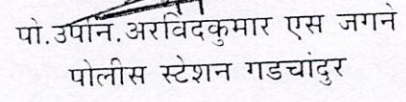 पो.उपनि.अरविंदकुमार एस जगने
पोलीस स्टेशन गडचांदुर